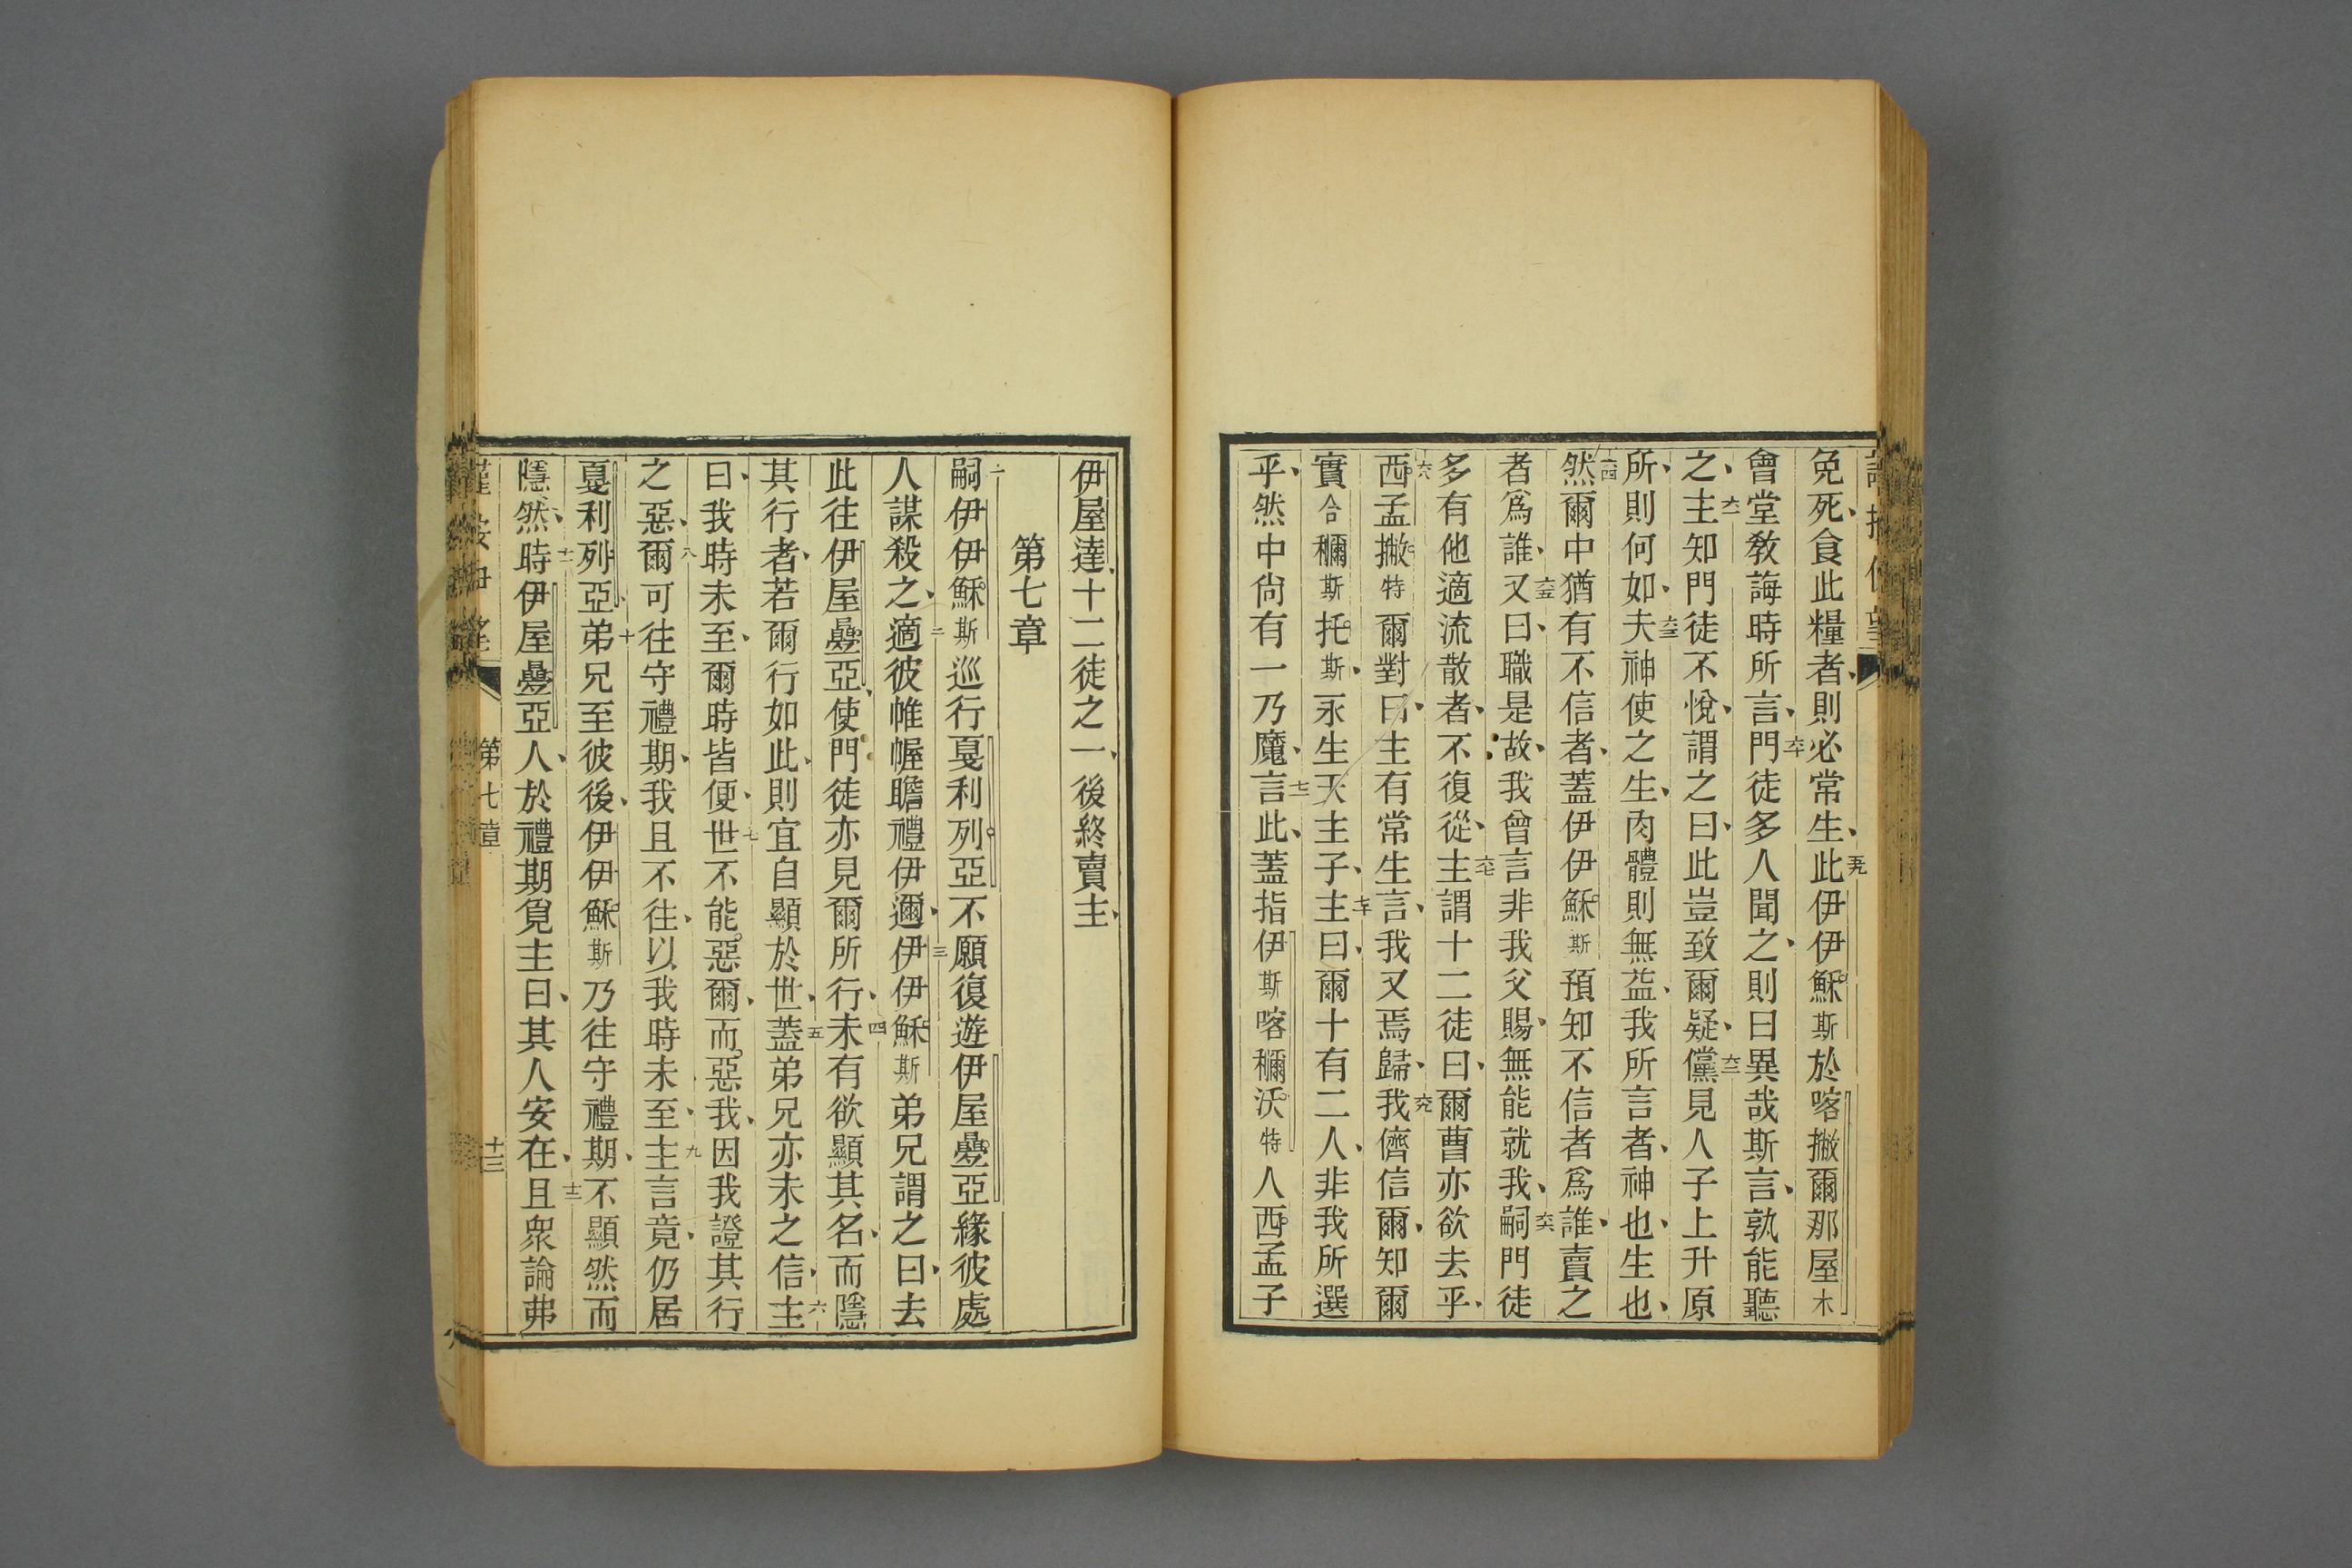 免死、食此糧者、則必常生、此伊伊穌斯於喀撇爾那屋木
會堂教誨時所言、門徒多人聞之、則曰異哉斯言、孰能聽
之、主知門徒不悅、謂之曰、此豈致爾疑、儻見人子上升原
所、則何如、夫神使之生、肉體則無益、我所言者、神也、生也、
然爾中猶有不信者、蓋伊伊穌斯預知不信者爲誰、賣之
者爲誰、又曰、職是故、我曾言非我父賜、無能就我、嗣門徒
多有他適流散者、不復從、主謂十二徒曰、爾曹亦欲去乎、
西孟撇特爾對曰、主有常生言、我又焉歸、我儕信爾、知爾
實合穪斯托斯、永生天主子、主曰、爾十有二人、非我所選
乎、然中尙有一乃魔、言此、蓋指伊斯喀穪沃特人西孟子
伊屋達、十二徒之一、後終賣主、
第七章
一嗣伊伊穌斯巡行戛利列亞、不願復遊伊屋疊亞、緣彼處
人謀殺之、二適彼帷幄瞻禮伊邇、三伊伊穌斯弟兄謂之曰、去
此往伊屋疊亞、使門徒亦見爾所行、四未有欲顯其名、而隱
其行者、若爾行如此、則宜自顯於世、五蓋弟兄亦未之信、六主
曰、我時未至、爾時皆便、七世不能惡爾、而惡我、因我證其行
之惡、八爾可往守禮期、我且不往、以我時未至、九主言竟、仍居
戛利列亞、十弟兄至彼後、伊伊穌斯乃往守禮期、不顯然而
隱然、十一時伊屋疊亞人、於禮期覓主曰、其人安在、十二且衆論弗
第七章
十三